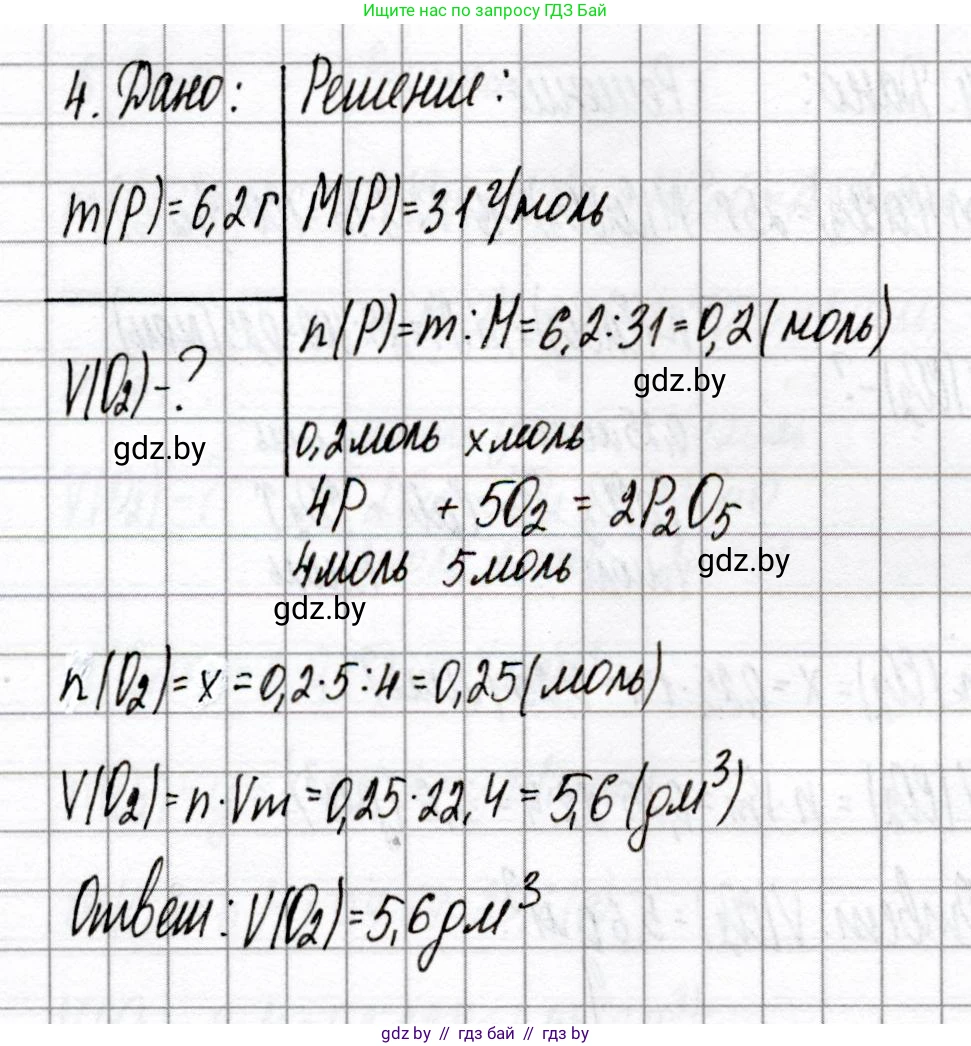 Ищите нас по запросу ГДЗ Бай
4. Дано:
Решение:
m(P)=6,2г
M(P)=31г/моль
n(P)=m:M=6,2:31=0,2(моль)
V(O₂)-?
gdz.by
gdz.by
0,2моль xмоль
4P + 5O₂ = 2P₂O₅
4моль 5моль
gdz.by
gdz.by
n(O₂)=x=0,2·5:4=0,25(моль)
V(O₂)=n·Vm=0,25·22,4=5,6(дм³)
Ответ: V(O₂)=5,6дм³
gdz.by // гдз бай // gdz.by